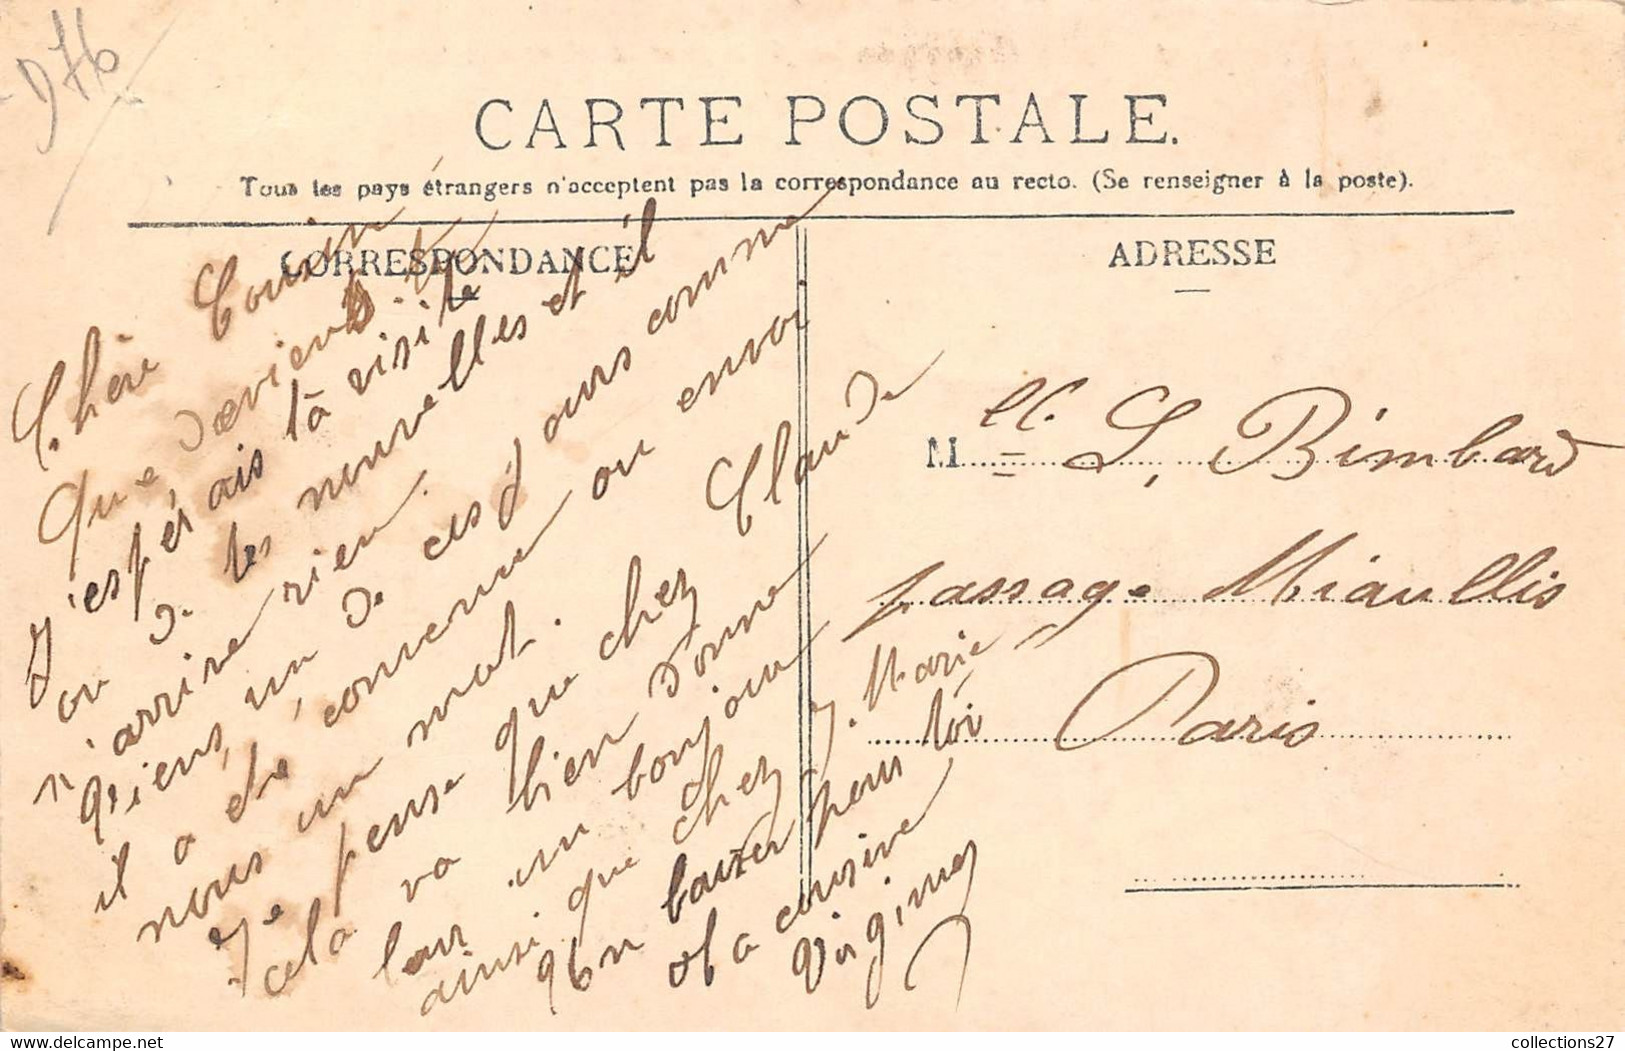 976
CARTE POSTALE.
Tous les pays étrangers n'acceptent pas la correspondance au recto. (Se renseigner à la poste).
CORRESPONDANCE
ADRESSE
Chère Cousine
Que deviens-tu
J'espérais ta visite
ou de tes nouvelles et il
n'arrive rien.
Tiens, un de ces jours comme
il a été convenu ou envoi
nous un mot.
Je pense que chez Claude
cela va bien donne
leur un bonjour
ainsi que chez J. Marie
Un baiser pour toi
Ta cousine
Virginie
Mlle L. Bimbard
passage Miaullis
Paris
collections27